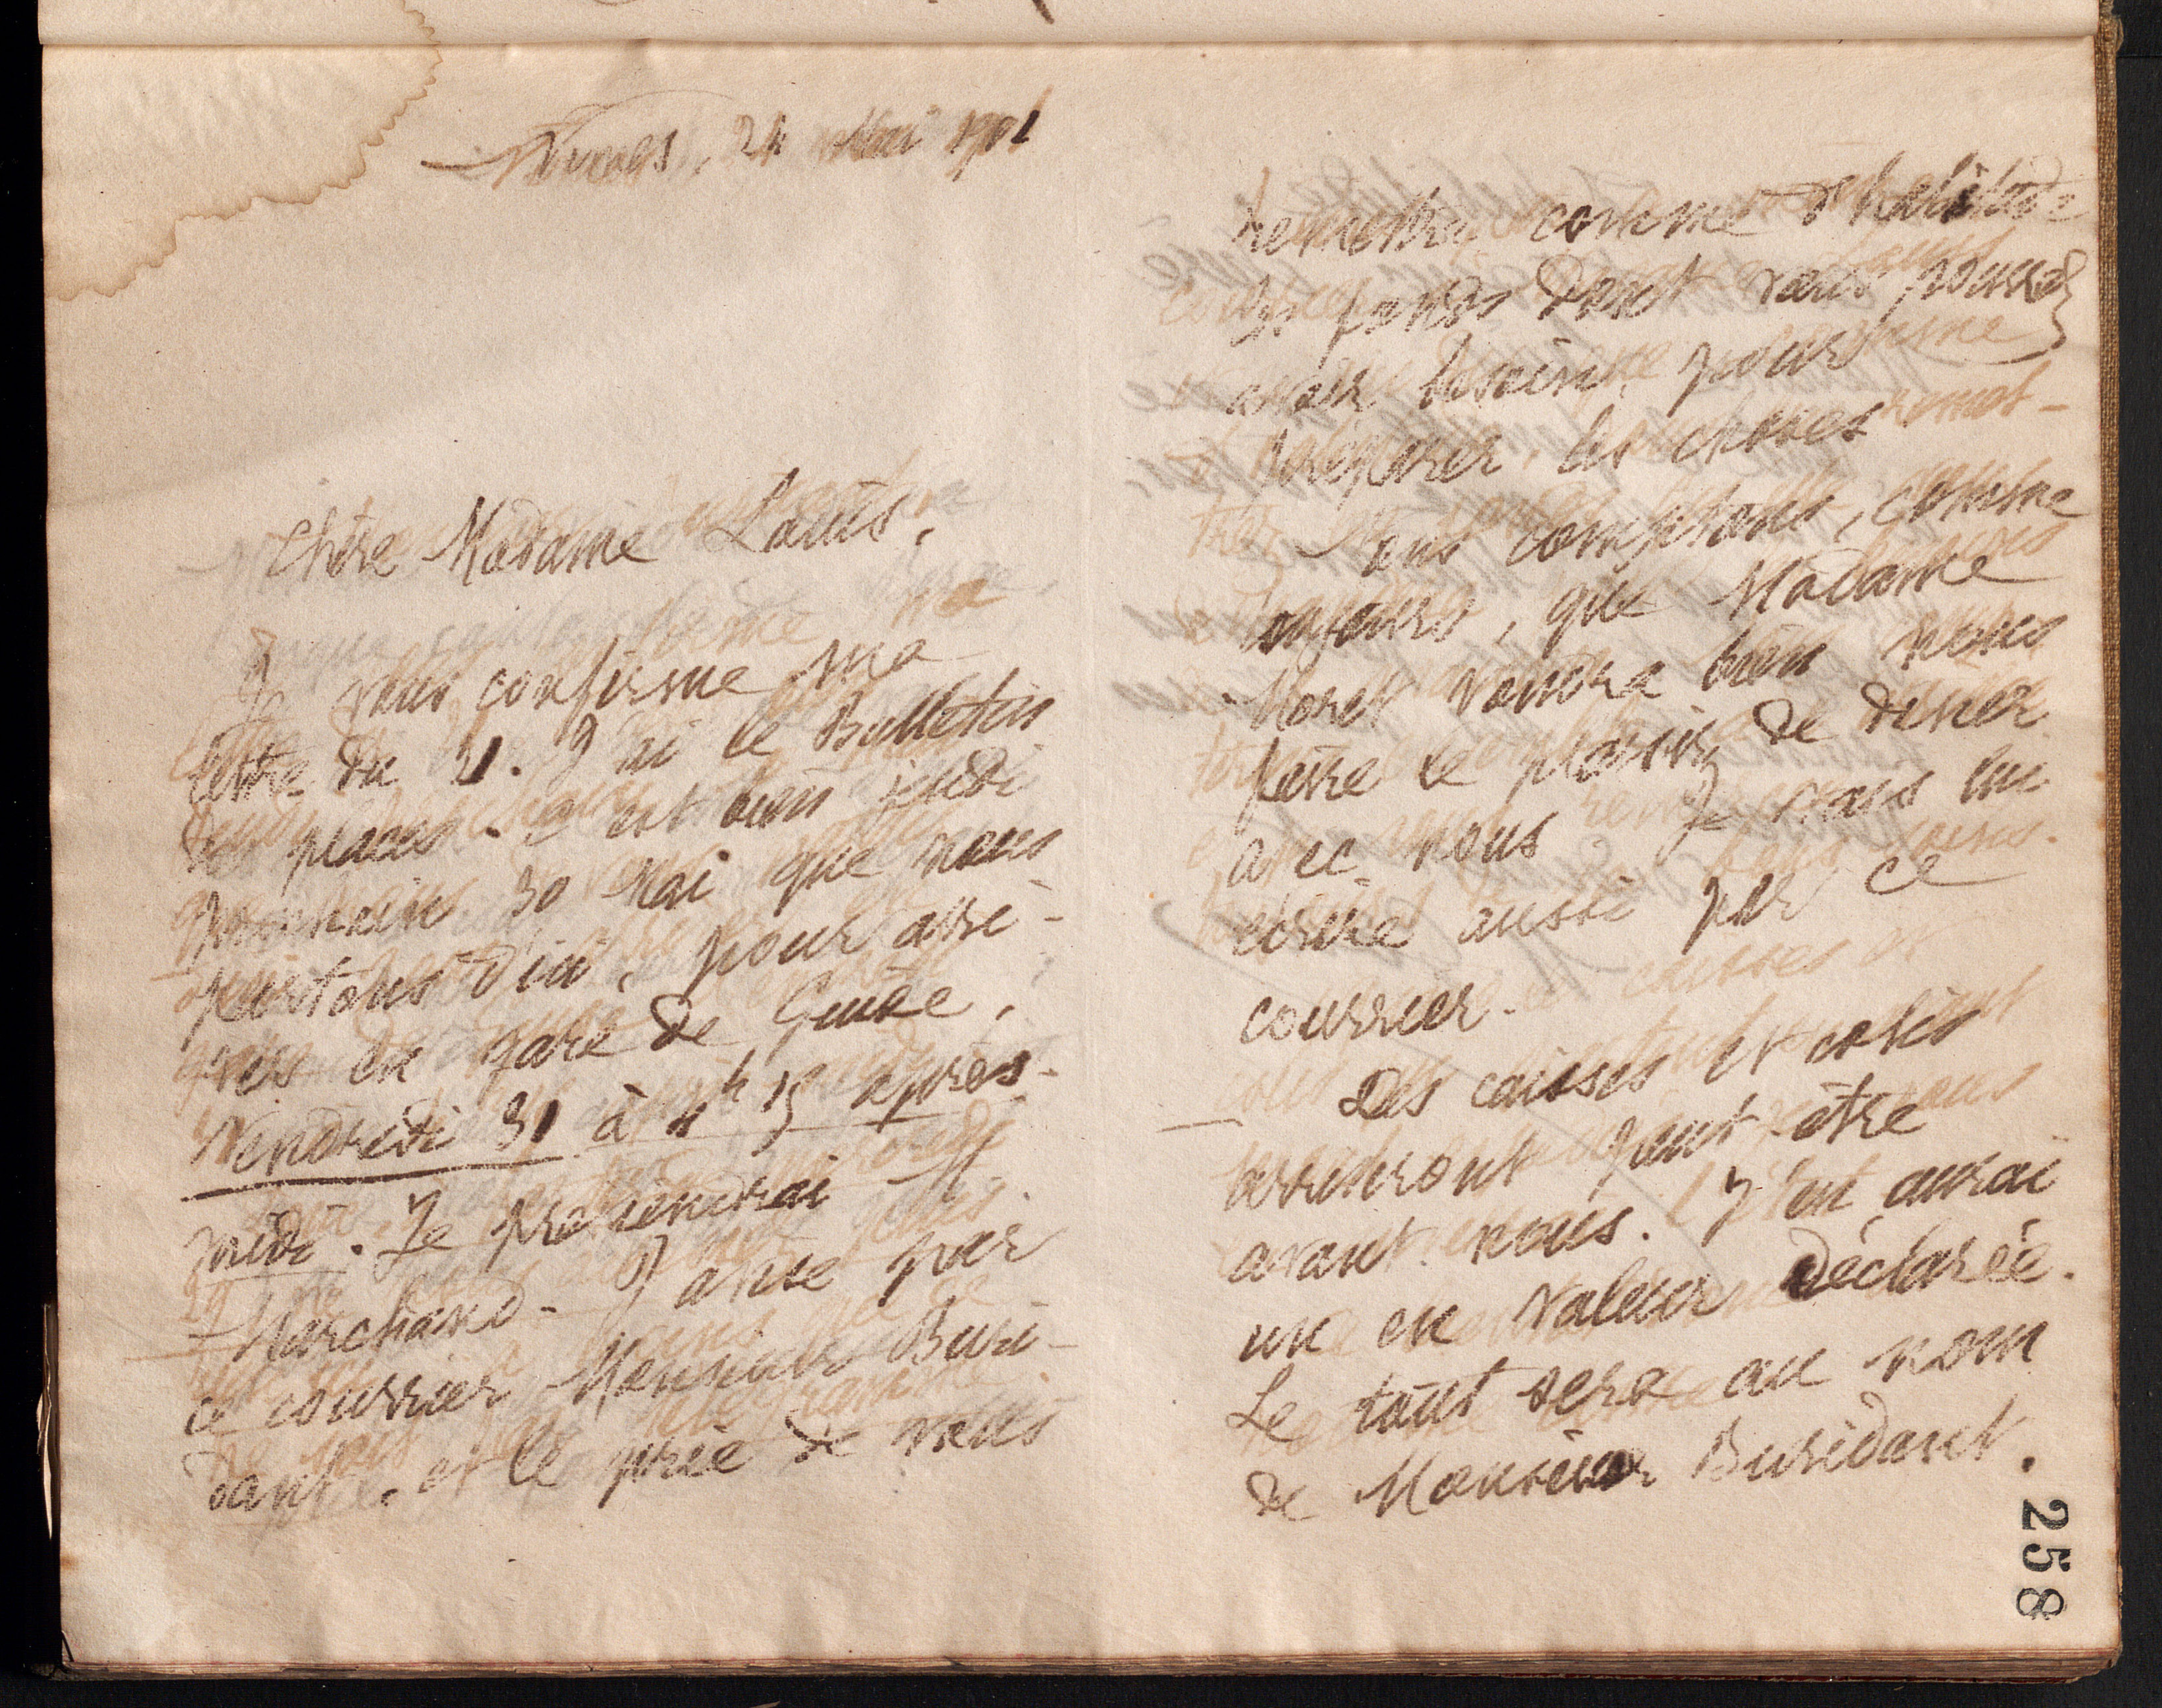 24 Mai 1901
Chère Madame Louis,
Je vous confirme ma
lettre du 21. J'ai le Bulletin
des places. C'est bien jeudi
prochain 30 Mai que nous
partons d'ici, pour arri-
ver en gare de Guise,
Vendredi 31 à 15 après-
midi. Je préviendrai M.
Marchand. J'avise par
ce courrier Monsieur Buri-
dant, et le prie de vous
remettre comme d'habitude
les fonds dont vous pourrez
avoir besoin pour
préparer les choses
Nous comptons, comme
toujours, que Madame
Moret voudra bien nous
faire le plaisir de dîner
avec nous. Je vais lui
écrire aussi par ce
courrier.
Des caisses et colis
arriveront peut-être
avant nous. J'en aurai
un en valeur déclarée.
Le tout sera au nom
de Monsieur Buridant.
258